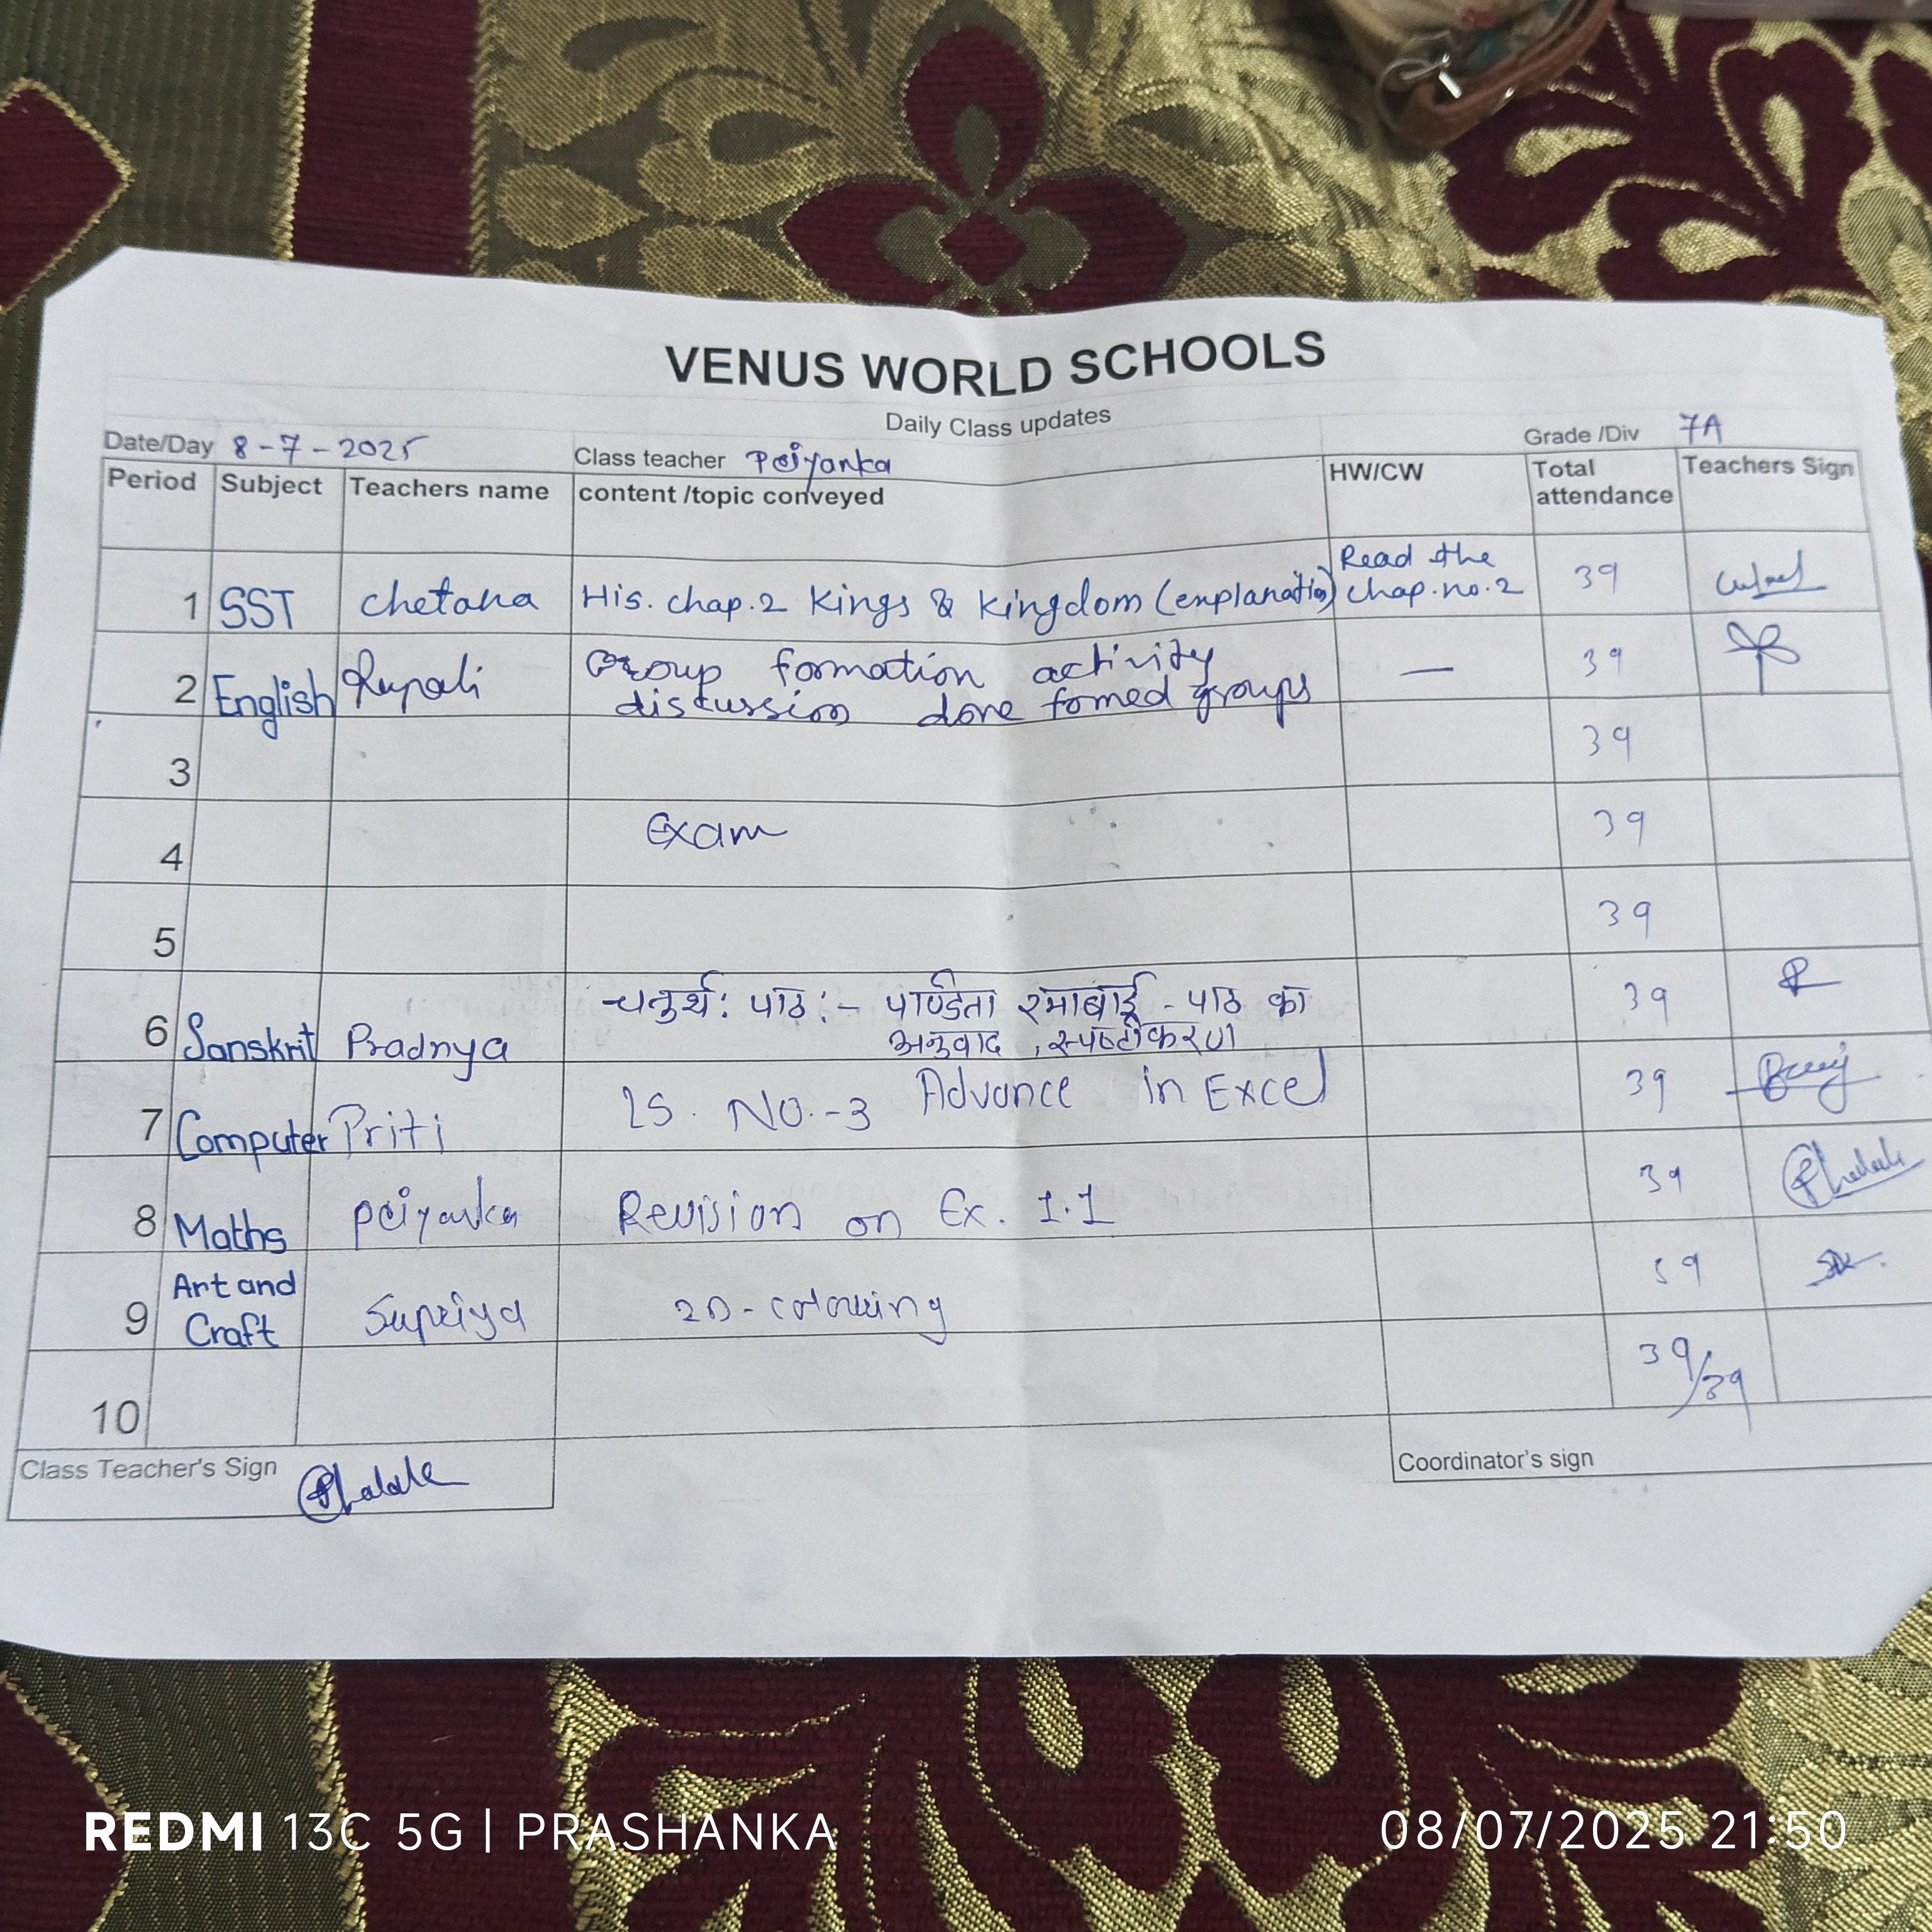 VENUS WORLD SCHOOLS
Daily Class updates
Date/Day 8-7-2025 Class teacher Priyanka Grade /Div 7A
Period Subject Teachers name content /topic conveyed HW/CW Total attendance Teachers Sign
1 SST Chetana His. chap.2 Kings & Kingdom (explanation) Read the chap.no.2 39
2 English Rupali Group formation activity — 39
discussion done fomed groups
3 39
4 Exam 39
5 39
6 Sanskrit Pradnya चतुर्थ: पाठ:- पण्डिता रमाबाई - पाठ का 39
अनुवाद, स्पष्टीकरण
7 Computer Priti LS. NO.-3 Advance in Excel 39
8 Maths Priyanka Revision on Ex. 1.1 39
9 Art and Craft Supriya 2D-colouring 39
10 39/39
Class Teacher's Sign Coordinator's sign
REDMI 13C 5G | PRASHANKA 08/07/2025 21:50